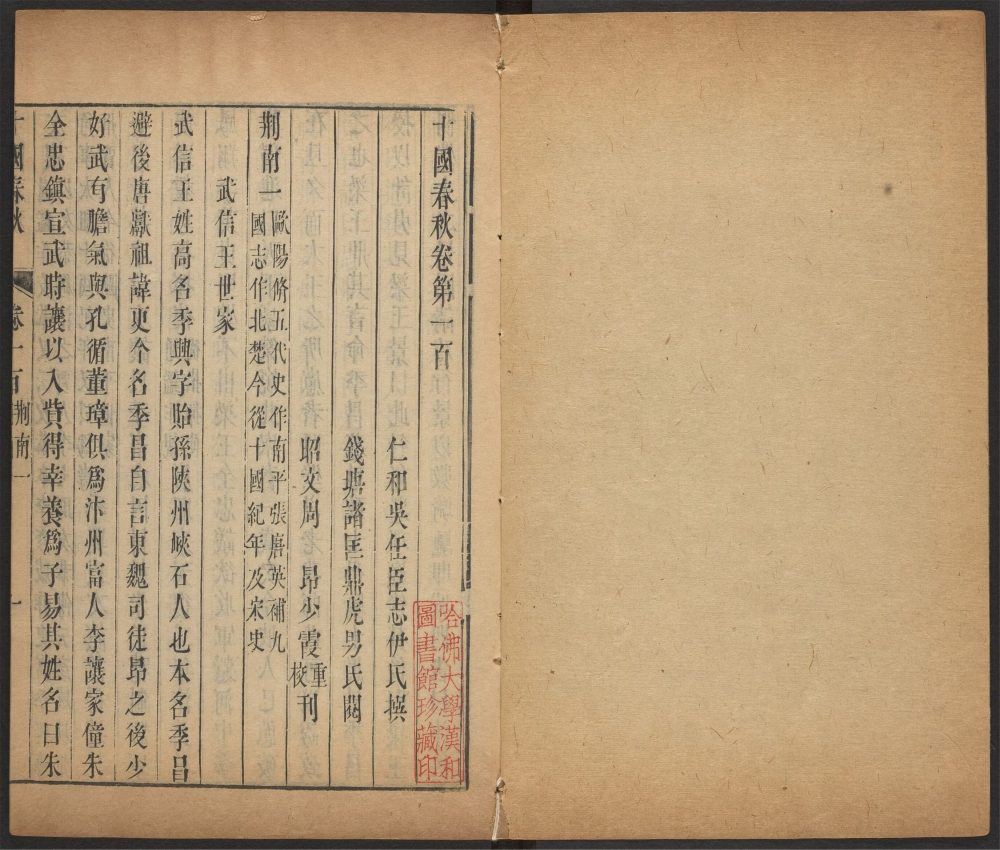 十國春秋卷第一百
仁和吳任臣志伊氏撰
錢塘諸匡鼎虎男氏閱
昭文周昂少霞重校刊
荆南一
歐陽脩五代史作南平張唐英補九
國志作北楚今從十國紀年及宋史
武信王世家
武信王姓高名季興字貽孫陝州峽石人也本名季昌
避後唐獻祖諱更今名季昌自言東魏司徒昂之後少
好武有膽氣與孔循董璋俱爲汴州富人李讓家僮朱
全忠鎮宣武時讓以入貲得幸養爲子易其姓名曰朱
十國春秋
卷一百荆南一
一
哈佛大學漢和
圖書館珍藏印